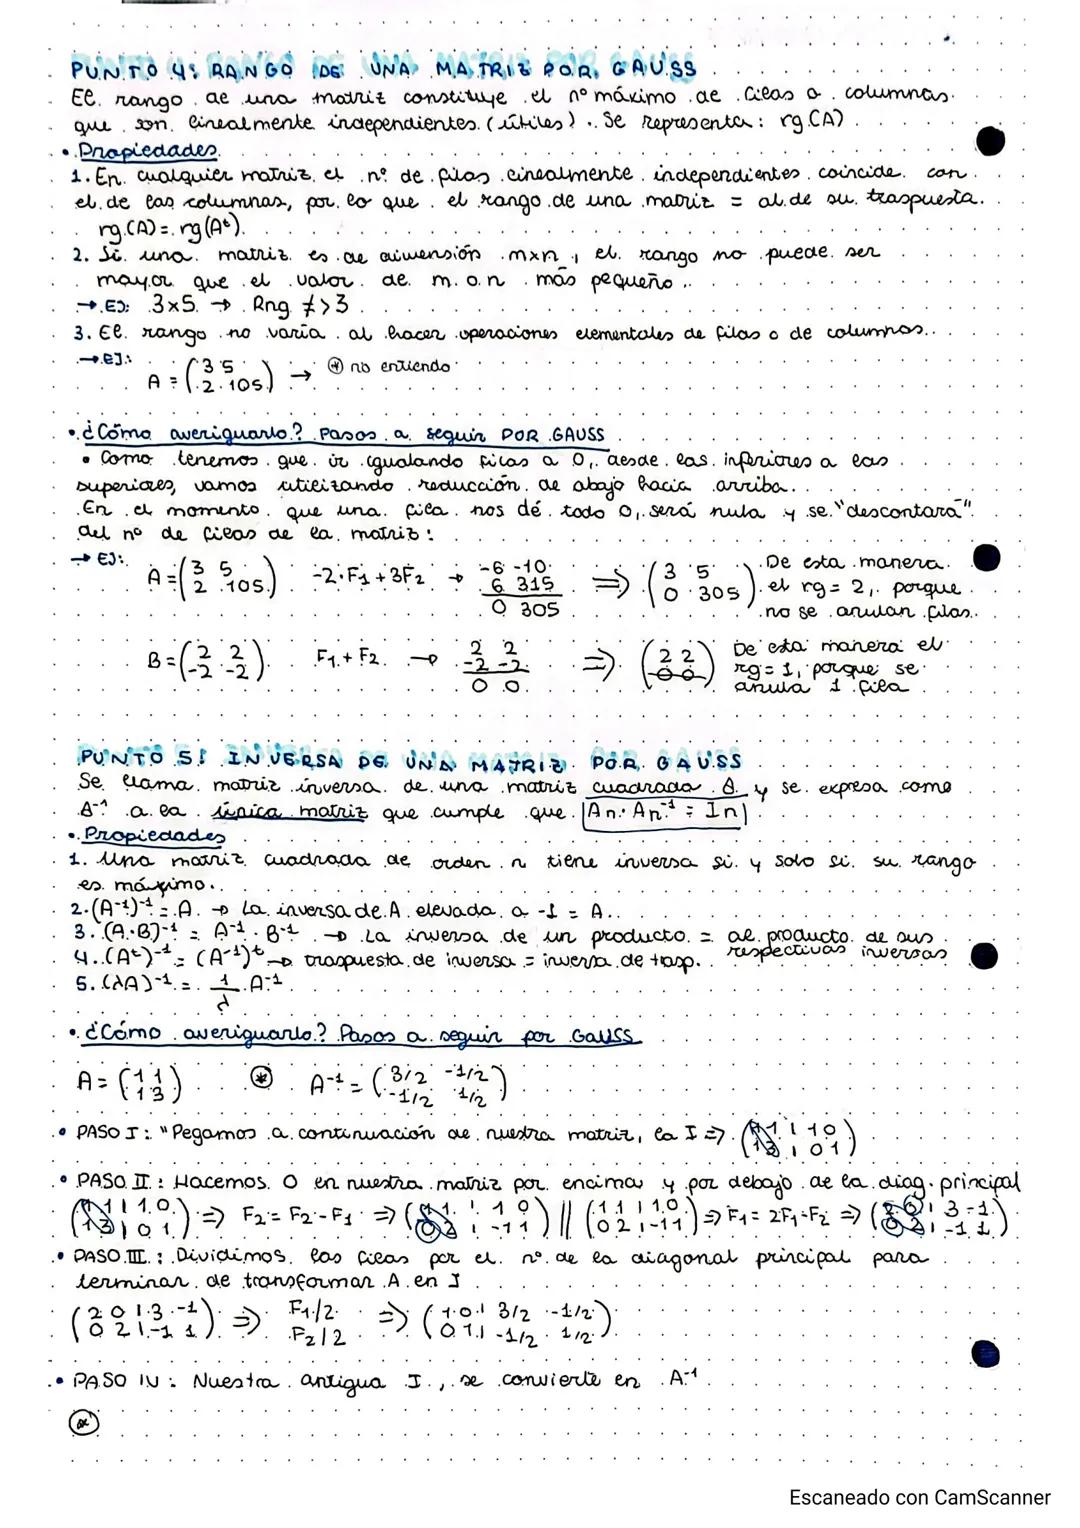 PUNTO 4: RANGO DE UNA MATRIZ POR GAUSS
El rango de una matriz constituye el nº máximo de filas o columnas
que son linealmente independientes (útiles). Se representa: rg(A)
• Propiedades
1. En cualquier matriz el nº de filas linealmente independientes coincide con
el de las columnas, por lo que el rango de una matriz = al de su traspuesta.
rg(A) = rg(Aᵗ).
2. Si una matriz es de dimensión m×n, el rango no puede ser
mayor que el valor de m o n más pequeño.
→ EJ: 3×5 → Rng ≯ 3
3. El rango no varía al hacer operaciones elementales de filas o de columnas.
→ EJ:
A = (3 5 / 2 105) → ⊛ no entiendo
• ¿Cómo averiguarlo? Pasos a seguir POR GAUSS
• Como tenemos que ir igualando filas a 0, desde las inferiores a las
superiores, vamos utilizando reducción de abajo hacia arriba.
En el momento que una fila nos dé todo 0, será nula y se "descontará"
del nº de filas de la matriz:
→ EJ:
A = (3 5 / 2 105) -2·F₁+3F₂ → -6 -10 / 6 315 / 0 305 ⇒ (3 5 / 0 305) De esta manera el rg = 2, porque no se anulan filas.
B = (2 2 / -2 -2) F₁+F₂ → 2 2 / -2 -2 / 0 0 ⇒ (2 2 / 0 0) De esta manera el rg = 1, porque se anula 1 fila
PUNTO 5: INVERSA DE UNA MATRIZ POR GAUSS
Se llama matriz inversa de una matriz cuadrada A y se expresa como
A⁻¹ a la única matriz que cumple que An·An⁻¹ = In
• Propiedades
1. Una matriz cuadrada de orden n tiene inversa si y solo si su rango
es máximo.
2. (A⁻¹)⁻¹ = A → La inversa de A elevada a -1 = A.
3. (A·B)⁻¹ = A⁻¹·B⁻¹ → La inversa de un producto = al producto de sus respectivas inversas
4. (Aᵗ)⁻¹ = (A⁻¹)ᵗ → traspuesta de inversa = inversa de trasp.
5. (λA)⁻¹ = 1/λ · A⁻¹
• ¿Cómo averiguarlo? Pasos a seguir por GAUSS
A = (1 1 / 1 3) ⊛ A⁻¹ = (3/2 -1/2 / -1/2 1/2)
• PASO I: "Pegamos a continuación de nuestra matriz, la I ⇒ (1 1 | 1 0 / 1 3 | 0 1)
• PASO II: Hacemos 0 en nuestra matriz por encima y por debajo de la diag. principal
(1 1 | 1 0 / 1 3 | 0 1) ⇒ F₂ = F₂-F₁ ⇒ (1 1 | 1 0 / 0 2 | -1 1) || (1 1 | 1 0 / 0 2 | -1 1) ⇒ F₁ = 2F₁-F₂ ⇒ (2 0 | 3 -1 / 0 2 | -1 1)
• PASO III: Dividimos las filas por el nº de la diagonal principal para
terminar de transformar A en I
(2 0 | 3 -1 / 0 2 | -1 1) ⇒ F₁/2 F₂/2 ⇒ (1 0 | 3/2 -1/2 / 0 1 | -1/2 1/2)
• PASO IV: Nuestra antigua I, se convierte en A⁻¹
⊛
Escaneado con CamScanner